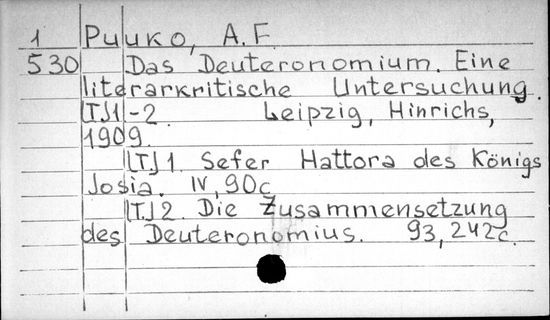 1 Puuko, A.F.
530 Das Deuteronomium. Eine
literarkritische Untersuchung.
[T.]1-2. Leipzig, Hinrichs,
1909.
[T.] 1. Sefer Hattora des Königs
Josia. IV, 90c
[T.] 2. Die Zusammensetzung
des Deuteronomius. 93, 242c.